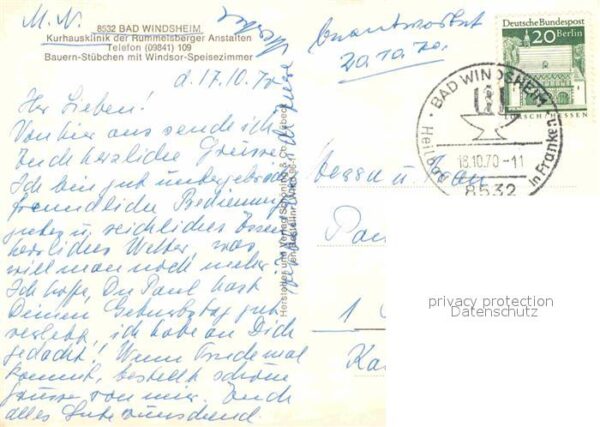 M. N.
8532 BAD WINDSHEIM
Kurhausklinik der Rummelsberger Anstalten
Telefon (09841) 109
Bauern-Stübchen mit Windsor-Speisezimmer
d. 17.10.70
Ihr Lieben!
Von hier aus sende ich
Euch herzliche Grüsse.
Ich bin gut untergebracht
freundliche Bedienung
gutes u. reichliches Essen
herrliches Wetter, was
will man noch mehr?
Ich hoffe, Du Paul hast
Deinen Geburtstag gut
verlebt, ich habe an Dich
gedacht! Wenn
kommt, bestellt schöne
Grüsse von mir. Euch
alles Gute wünschend
Herstellung und Verlag Schöning & Co., Lübeck
beantwortet
20.10.70.
Deutsche Bundespost
20 Berlin
LORSCH/HESSEN
BAD WINDSHEIM
Heilbad
in Franken
18.10.70-11
8532
u.
1
privacy protection
Datenschutz